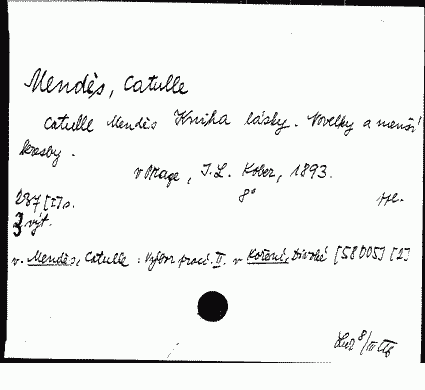 Mendès, Catulle
Catulle Mendès Kniha lásky. Novelky a menší
kresby.
v Praze, J. L. Kober, 1893.
237 [I] s. 8°
3 výt.
v. Mendès, Catulle: Výbor prací. II. v Koření, Divoké [58 D05] [2]